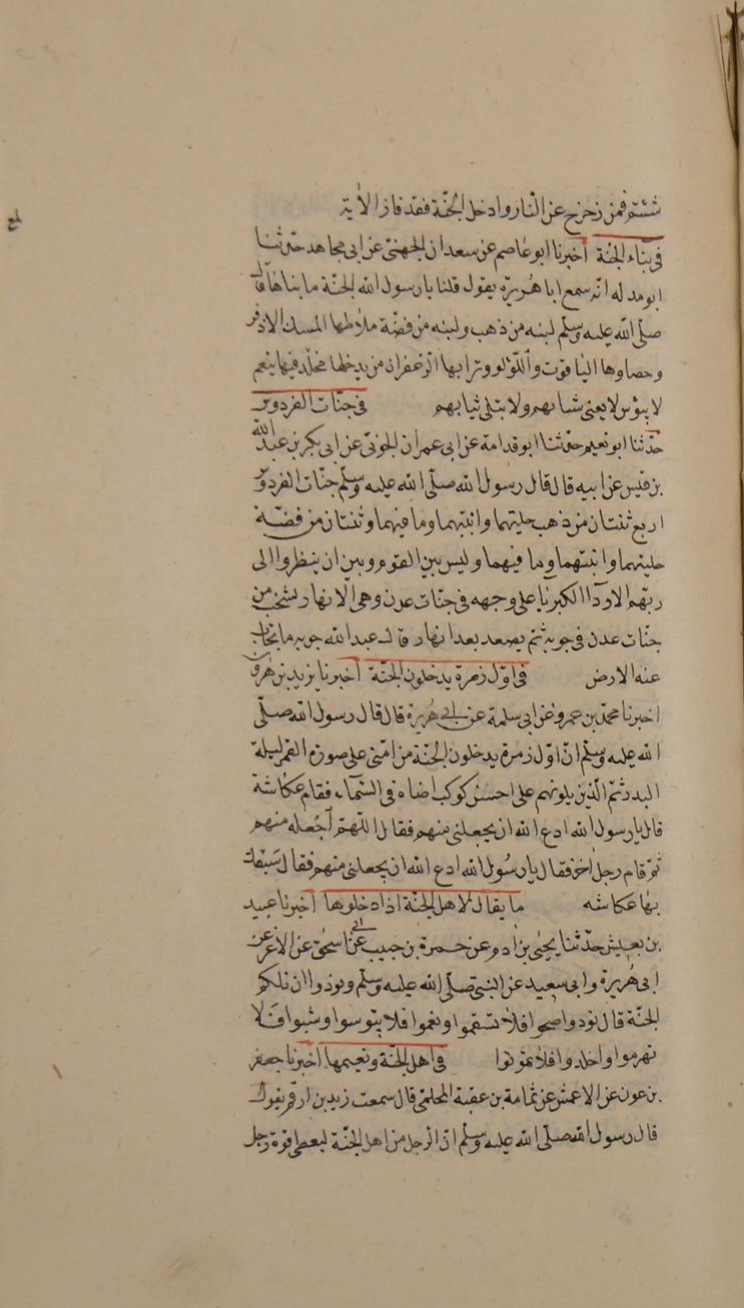 شئتم فمن زحزح عن النار وادخل الجنة فقد فاز الاٰية
فى بناء الجنة اخبرنا ابو عاصم عن سعدان الجهنى عن ابى مجاهد حدثنا
ابو مدله انه سمع ابا هريرة يقول قلنا يا رسول الله الجنة ما بناها قال
صلى الله عليه وسلم لبنه من ذهب ولبنه من فضة ملاطها المسك الاذفر
وحصاوها الياقوت واللؤلو وترابها الزعفران من يدخلها مخلد فيها ينعم
لا يبؤس لا يفنى شبابهم ولا يبتلى ثيابهم فى جنات الفردوس
حدثنا ابو نعيم حدثنا ابو قدامة عن ابى عمران الجونى عن ابى بكر بن عبد الله
بن قيس عن ابيه قال قال رسول الله صلى الله عليه وسلم جنات الفردوس
اربع ثنتان من ذهب حليتهما وانيتهما وما فيهما وثنتان من فضة
حليتهما وانيتهما وما فيهما وليس بين القوم وبين ان ينظروا الى
ربهم الا ردآ الكبريا على وجهه فى جنات عدن وهى الانهار تشخب من
جنات عدن فى جوبة ثم يصعد بعد انهار قال عبد الله جوبه ما يجاب
عنه الارض فى اول زمرة يدخلون الجنة اخبرنا يزيد بن هرون
اخبرنا محمد بن عمرو عن ابى سلمة عن ابى هريرة قال قال رسول الله صلى
الله عليه وسلم ان اول زمرة يدخلون الجنة من امتى على صورة القمر ليلة
البدر ثم الذين يلونهم على احسن كوكب اضاه فى السماء فقام عكاشة
قال يا رسول الله ادع الله ان يجعلنى منهم فقال اللهم اجعله منهم
ثم قام رجل اخر فقال يا رسول الله ادع الله ان يجعلنى منهم فقال سبقك
بها عكاشه ما يقال لاهل الجنة اذا دخلوها اخبرنا عبيد
بن يعيش حدثنا يحيى بن ادم عن حمزة بن حبيب عن ابى اسحق عن الاغر عن
ابى هريرة وابى سعيد عن النبى صلى الله عليه وسلم ونودوا ان تلكم
الجنة قال نودوا صحوا فلا تسقموا ونعموا فلا تبوسوا وشبوا فلا
تهرموا واخلدوا فلا تموتوا فى اهل الجنة ونعيمها اخبرنا جعفر
بن عون عن الاعمش عن ثمامة بن عقبة المحلمى قال سمعت زيد بن ارقم يقول
قال رسول الله صلى الله عليه وسلم ان الرجل من اهل الجنة ليعطى قوة رجل